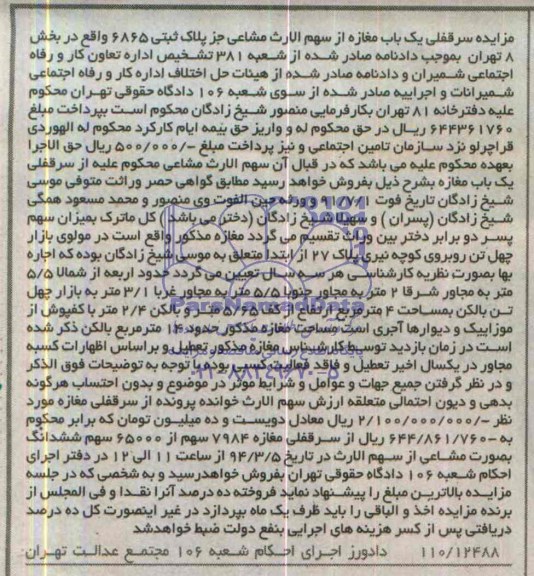 مزایده سرقفلی یک باب مغازه از سهم الارث مشاعی جز پلاک ثبتی ۶۸۶۵ واقع در بخش
۸ تهران بموجب دادنامه صادر شده از شعبه ۳۸۱ تشخیص اداره تعاون کار و رفاه
اجتماعی شمیران و دادنامه صادر شده از هیئات حل اختلاف اداره کار و رفاه اجتماعی
شمیرانات و اجراییه صادر شده از سوی شعبه ۱۰۶ دادگاه حقوقی تهران محکوم
علیه دفترخانه ۸۱ تهران بکارفرمایی منصور شیخ زادگان محکوم است بپرداخت مبلغ
۶۴۴۳۶۱۷۶۰ ریال در حق محکوم له و واریز حق بیمه ایام کارکرد محکوم له الهوردی
قراچرلو نزد سازمان تامین اجتماعی و نیز پرداخت مبلغ -/۵۰۰/۰۰۰ ریال حق الاجرا
بعهده محکوم علیه می باشد که در قبال آن سهم الارث مشاعی محکوم علیه از سرقفلی
یک باب مغازه بشرح ذیل بفروش خواهد رسید مطابق گواهی حصر وراثت متوفی موسی
شیخ زادگان تاریخ فوت و ورثه حین الفوت وی منصور و محمد مسعود همگی
شیخ زادگان (پسران) و سهیلا شیخ زادگان (دختر می باشد) کل ماترک بمیزان سهم
پسر دو برابر دختر بین وراث تقسیم می گردد مغازه مذکور واقع است در مولوی بازار
چهل تن روبروی کوچه نیری پلاک ۲۷ از ابتدا متعلق به موسی شیخ زادگان بوده که اجاره
بها بصورت نظریه کارشناسی هر سه سال تعیین می گردد حدود اربعه از شمالا ۵/۵
متر به مجاور شرقا ۲ متر به مجاور جنوبا ۵/۵ متر به مجاور غربا ۳/۱ متر به بازار چهل
تن بالکن بمساحت ۴ مترمربع ارتفاع از کف ۵/۶۵ متر و بالکن ۲/۴ متر با کفپوش از
موزاییک و دیوارها آجری است مساحت مغازه مذکور حدود ۱۴ مترمربع بالکن ذکر شده
است در زمان بازدید توسط کارشناس مغازه مذکور تعطیل و براساس اظهارات کسبه
مجاور در یکسال اخیر تعطیل و فاقد فعالیت کسبی بوده با توجه به توضیحات فوق الذکر
و در نظر گرفتن جمیع جهات و عوامل و شرایط موثر در موضوع و بدون احتساب هرگونه
بدهی و دیون احتمالی متعلقه ارزش سهم الارث خوانده پرونده از سرقفلی مغازه مورد
نظر -/۲/۱۰۰/۰۰۰/۰۰۰ ریال معادل دویست و ده میلیون تومان که برابر محکوم
به -۶۴۴/۸۶۱/۷۶۰ ریال از سرقفلی مغازه ۷۹۸۴ سهم از ۶۵۰۰۰ سهم ششدانگ
بصورت مشاعی از سهم الارث در تاریخ ۹۴/۳/۵ از ساعت ۱۱ الی ۱۲ در دفتر اجرای
احکام شعبه ۱۰۶ دادگاه حقوقی تهران بفروش خواهدرسید و به شخصی که در جلسه
مزایده بالاترین مبلغ را پیشنهاد نماید فروخته ده درصد آنرا نقدا و فی المجلس از
برنده مزایده اخذ و الباقی را باید ظرف یک ماه بپردازد در غیر اینصورت کل ده درصد
دریافتی پس از کسر هزینه های اجرایی بنفع دولت ضبط خواهدشد
۱۱۰/۱۲۴۸۸ دادورز اجرای احکام شعبه ۱۰۶ مجتمع عدالت تهران
ParsNamadData